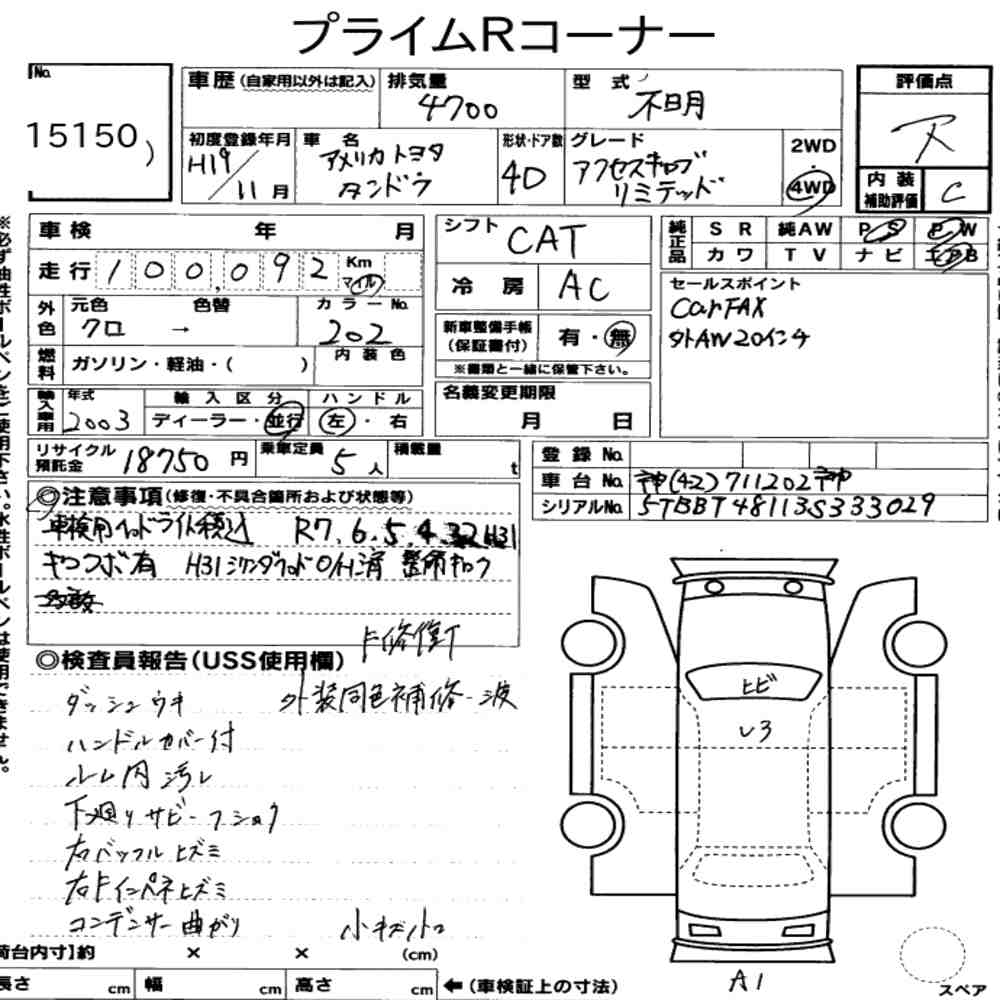 プライムRコーナー
No.
15150
車歴 (自家用以外は記入)
排気量
4700
型式
不明
評価点
R
初度登録年月
H19/11月
車名
アメリカトヨタ
タンドラ
形状・ドア数
4D
グレード
アクセスキャブ
リミテッド
2WD
・
4WD
内装
補助評価
C
※必ず油性ボールペンをご使用下さい。水性ボールペンは使用できません。
車検 年 月
シフト
CAT
純正品
SR 純AW PS PW
カワ TV ナビ エアB
走行 100,092 Km マイル
冷房
AC
セールスポイント
CarFAX
外AW20インチ
外色
元色 色替
クロ →
カラーNo.
202
新車整備手帳
(保証書付)
有・無
※書類と一緒に保管下さい。
燃料
ガソリン・軽油・( )
内装色
名義変更期限
月 日
輸入車用
年式
2003
輸入区分
ディーラー・並行
ハンドル
左・右
リサイクル
預託金 18750円
乗車定員
5人
積載量
t
登録No.
車台No. 神(42)711202神
シリアルNo. 5TBBT48113S333029
◎注意事項(修復・不具合箇所および状態等)
車検用ヘッドライト積込 R7.6.5.4.3 H31
キャブコブ有 H31シリンダヘッドO/H済 整備キロク
多数
F修復T
◎検査員報告(USS使用欄)
ダッシュウキ 外装同色補修・波
ハンドルカバー付
ルーム内汚レ
下廻りサビ・フショク
右バッフルヒズミ
右Fインパネヒズミ
コンデンサー曲がり 小キズ小凹
ヒビ
U3
A1
荷台内寸】約 × × (cm)
長さ cm 幅 cm 高さ cm ←(車検証上の寸法)
スペア